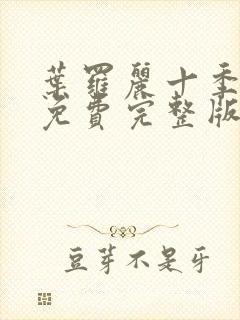 葉羅麗十季
免費完整版
豆芽不是牙